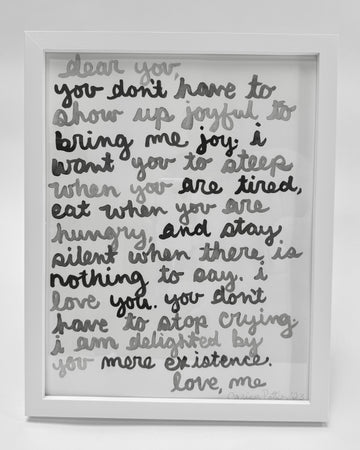 dear you,
you don't have to
show up joyful to
bring me joy. i
want you to steep
when you are tired,
eat when you are
hungry, and stay
silent when there is
nothing to say. i
love you. you don't
have to stop crying.
i am delighted by
you mere existence.
love, me